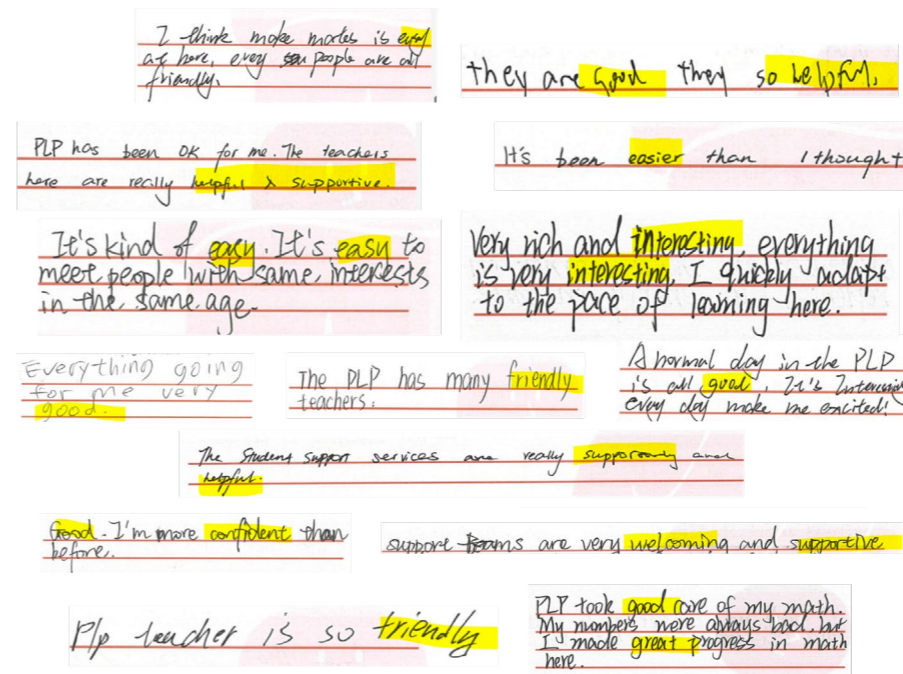 I think make mates is easy
at here, every people are all
friendly.
they are Good they so helpful.
PLP has been OK for me. The teachers
here are really helpful & supportive.
It's been easier than I thought
It's kind of easy. It's easy to
meet people with same interests
in the same age.
Very rich and interesting, everything
is very interesting. I quickly adapt
to the pace of learning here.
Everything going
for me very
good.
The PLP has many friendly
teachers.
A normal day in the PLP
is all good, It's
every day make me excited!
The Student support services are really and
helpful.
Good. I'm more confident than
before.
support teams are very welcoming and supportive
Plp teacher is so friendly
PLP took good care of my math.
My numbers were always bad, but
I made great progress in math
here.